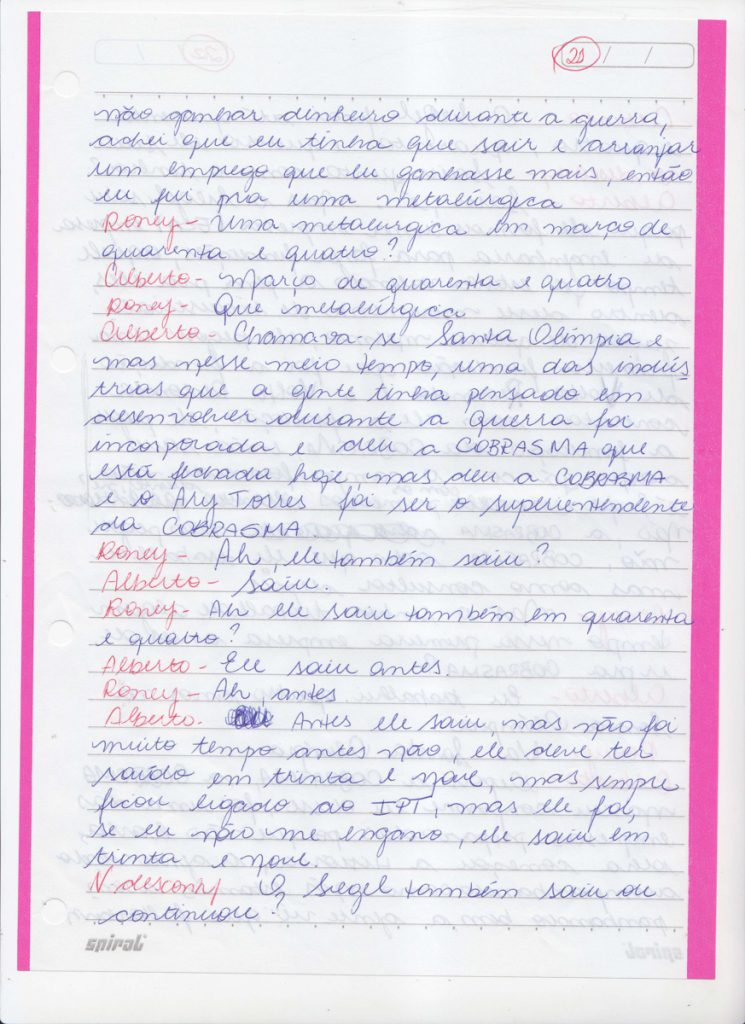 21 / /
não ganhar dinheiro durante a guerra,
achei que eu tinha que sair e arranjar
um emprego que eu ganhasse mais, então
eu fui pra uma metalúrgica
Roney - Uma metalurgica em março de
quarenta e quatro?
Alberto - Março de quarenta e quatro
Roney - Que metalúrgica
Alberto - Chamava-se Santa Olímpia e
mas nesse meio tempo, uma das indús
trias que a gente tinha pensado em
desenvolver durante a Guerra foi
incorporada e deu a COBRASMA que
está fechada hoje, mas deu a COBRASMA
e o Ary Torres foi ser o superientendente
da COBRASMA.
Roney - Ah, ele também saiu?
Alberto - Saiu.
Roney - Ah ele saiu também em quarenta
e quatro?
Alberto - Ele saiu antes.
Roney - Ah antes
Alberto - Antes ele saiu, mas não foi
muito tempo antes não, ele deve ter
saído em trinta e nove, mas sempre
ficou ligado ao IPT, mas ele foi,
se eu não me engano, ele saiu em
trinta e nove.
N desconhj O Siegel também saiu ou
continuou?
spiral